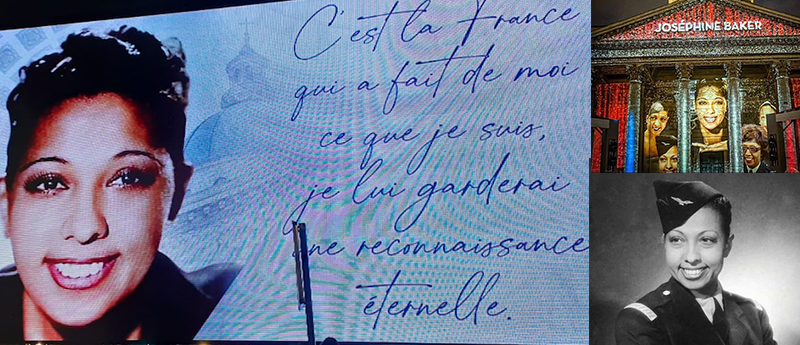 C'est la France
qui a fait de moi
ce que je suis,
je lui garderai
une reconnaissance
éternelle.
JOSÉPHINE BAKER